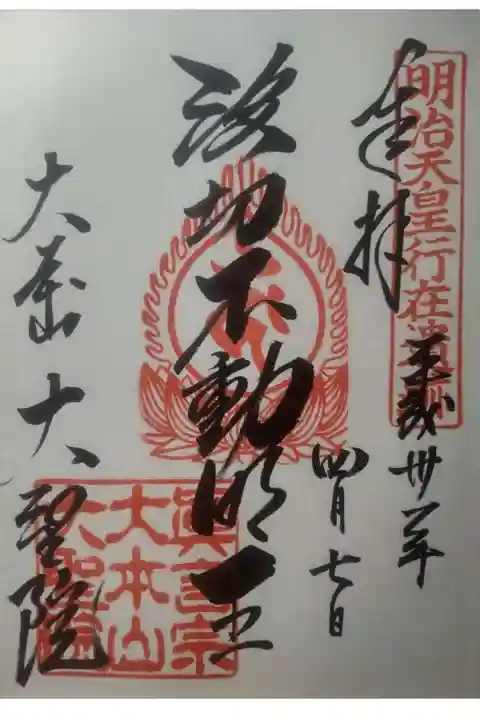 明治天皇行在
奉拝
平成卅年
四月七日
波切不動明王
大本山 大聖院
眞言宗
大本山
大聖院